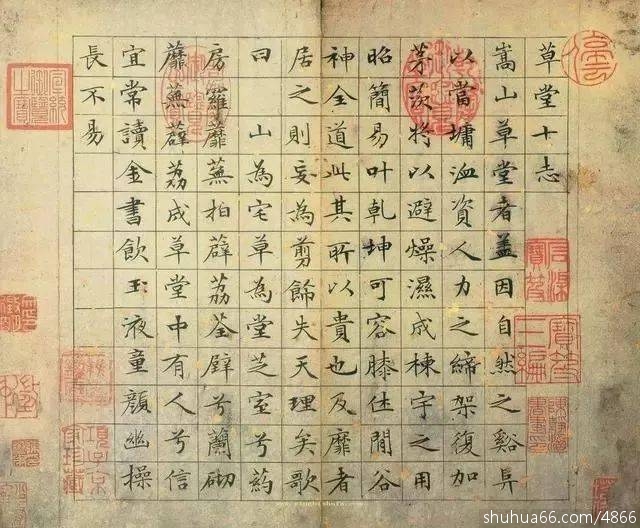 草堂十志
嵩山草堂者盖因自然之谿阜
以當墉洫資人力之締架復加
茅茨將以避燥濕成棟宇之用
昭簡易叶乾坤可容膝休閒谷
神全道此其所以貴也及靡者
居之則妄為剪餙失天理矣歌
曰 山為宅草為堂芝室兮葯
房羅蘼蕪拍薜荔荃壁兮蘭砌
蘼蕪薜荔成草堂中有人兮信
宜常讀金書飲玉液童顏幽操
長不易
shuhua66.com/4866